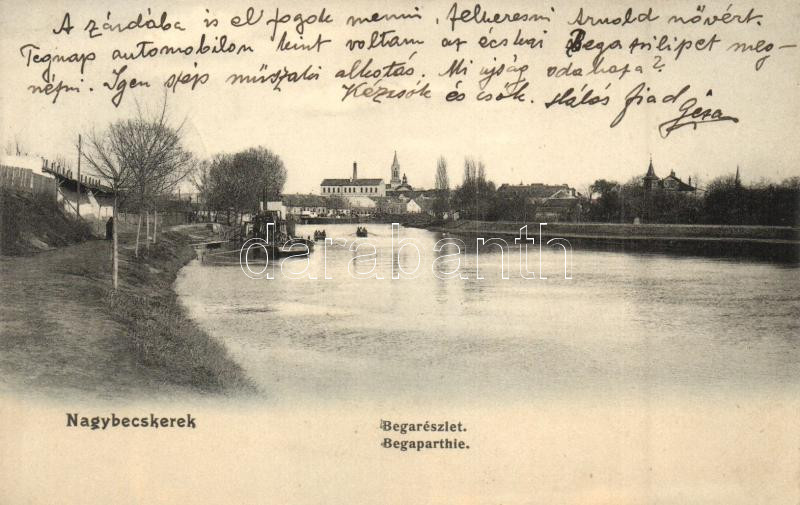 A zárdába is el fogok menni, felkeresni Arnold nővért.
Tegnap automobilon kint voltam az écskai Bega zsilipet meg-
nézni. Igen szép műszaki alkotás. Mi ujság odahaza?
Kézcsók és csók. Hálás fiad Géza
darabanth
Nagybecskerek
Begarészlet.
Begaparthie.